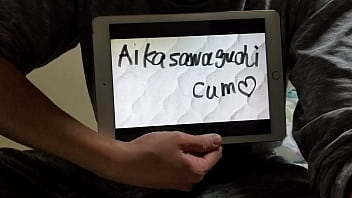 Aikasawaguchi
cum♡